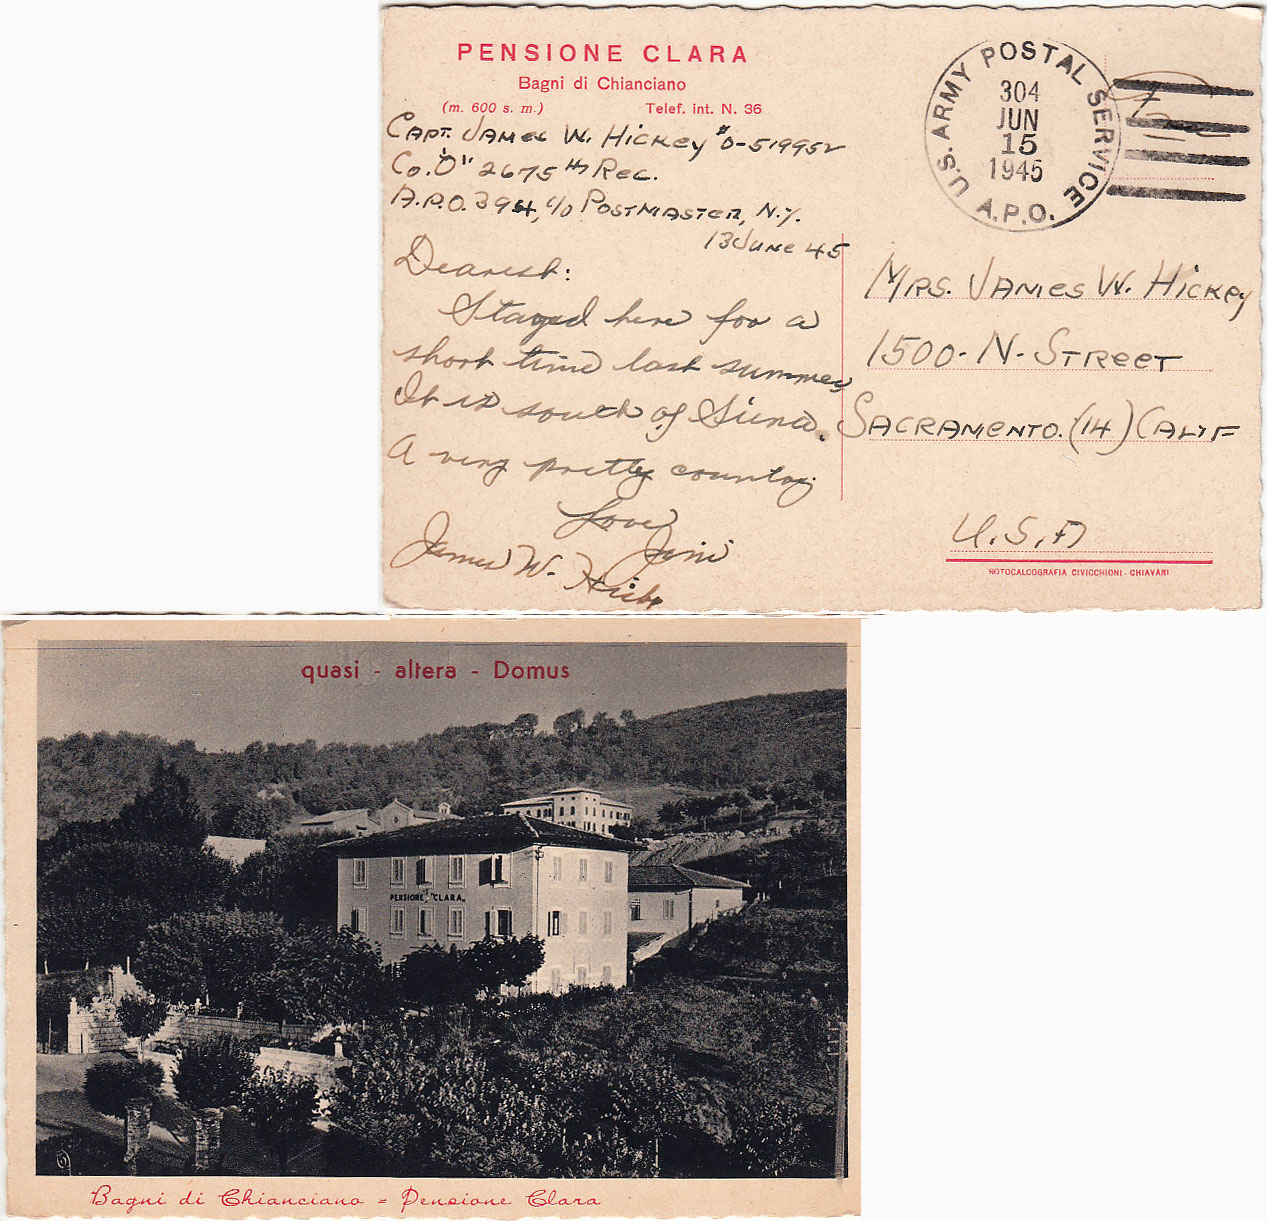 PENSIONE CLARA
Bagni di Chianciano
(m. 600 s. m.) Telef. int. N. 36
CAPT. JAMES W. HICKEY #O-519952
Co. "O" 2675th REG.
A.P.O. 394, c/o POSTMASTER, N.Y.
13 JUNE 45
Dearest:
Stayed here for a
short time last summer
It is south of Siena.
A very pretty country
Love
Jim
James W. Hickey
U.S. ARMY POSTAL SERVICE
304
JUN
15
1945
A.P.O.
MRS. JAMES W. HICKEY
1500 - N - STREET
SACRAMENTO. (14) CALIF
U.S.A
ROTOCALCOGRAFIA CIVICCHIONI - CHIAVARI
quasi - altera - Domus
PENSIONE CLARA
Bagni di Chianciano = Pensione Clara